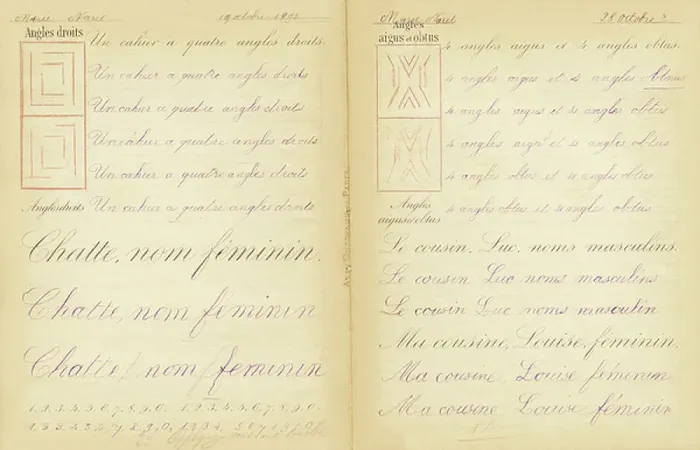 Marie Maret 19 octobre 1891
Angles droits
Un cahier a quatre angles droits.
Un cahier a quatre angles droits
Un cahier a quatre angles droits
Un cahier a quatre angles droits
Un cahier a quatre angles droits
Angles droits Un cahier a quatre angles droits
Chatte, nom féminin.
Chatte, nom féminin
Chatte, nom feminin
1.2.3.4.5.6.7.8.9.0. 1.2.3.4.5.6.7.8.9.0.
28 octobre
Angles
aigus et obtus
4 angles aigus et 4 angles obtus.
4 angles aigus et 4 angles obtus
4 angles aigus et 4 angles obtus
4 angles et 4 angles obtus
4 angles obtus et 4 angles obtus
Angles
aigus et obtus
4 angles obtus et 4 angles obtus
Le cousin, Luc, noms masculins.
Le cousin Luc noms masculins
Le cousin Luc noms masculin
Ma cousine, Louise, féminin.
Ma cousine Louise féminin
Ma cousine Louise féminin